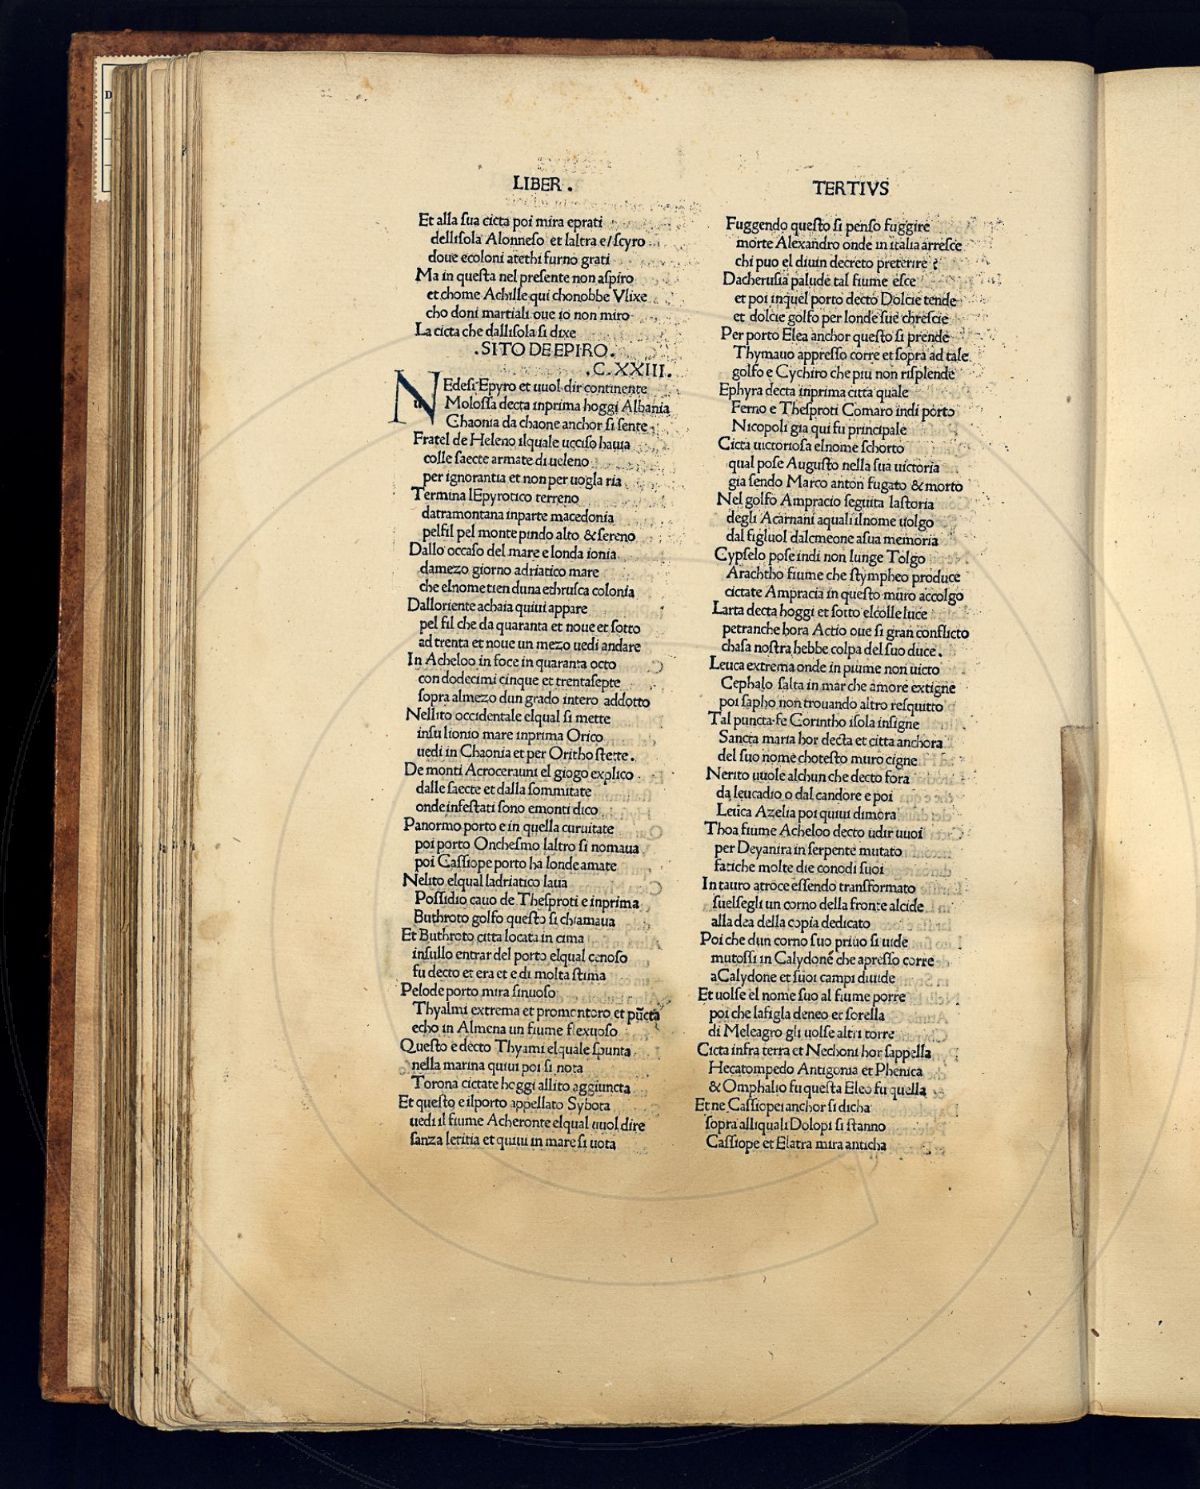 LIBER.
Et alla sua cicta poi mira eprati
dellisola Alonneso et laltra e/scyro
doue ecoloni atethi furno grati
Ma in questa nel presente non aspiro
et chome Achille qui chonobbe Vlixe
cho doni martiali oue io non miro
La cicta che dallisola si dixe
.SITO DE EPIRO.
.C.XXIII.
NEdesi Epyro et uuol dir continente
Molossa decta inprima hoggi Albania
Chaonia da chaone anchor si sente
Fratel de Heleno ilquale ucciso hauia
colle saecte armate di ueleno
per ignorantia et non per uogla ria
Termina lEpyrotico terreno
datramontana inparte macedonia
pelfil pel monte pindo alto & sereno
Dallo occaso del mare e londa ionia
damezo giorno adriatico mare
che elnome tien duna ethrusca colonia
Dalloriente achaia quiui appare
pel fil che da quaranta et noue et sotto
ad trenta et noue un mezo uedi andare
In Acheloo in foce in quaranta octo
con dodecimi cinque et trentasepte
sopra almezo dun grado intero addotto
Nellito occidentale elqual si mette
insu lionio mare inprima Orico
uedi in Chaonia et per Oritho stette.
De monti Acrocerauni el giogo explico
dalle saecte et dalla sommitate
onde infestati sono emonti dico
Panormo porto e in quella curuitate
poi porto Onchesmo laltro si nomaua
poi Cassiope porto ha londe amate
Nelito elqual ladriatico laua
Possidio cauo de Thesproti e inprima
Buthroto golfo questo si chiamaua
Et Buthroto citta locata in cima
insullo entrar del porto elqual cenoso
fu decto et era et e di molta stima
Pelode porto mira sinuoso
Thyalmi extrema et promontoro et pūcta
echo in Almena un fiume flexuoso
Questo e decto Thyami elquale spunta
nella marina quiui poi si nota
Torona cictate hoggi allito aggiuncta
Et questo e ilporto appellato Sybota
uedi il fiume Acheronte elqual uuol dire
sanza letitia et quiui in mare si uota
TERTIVS
Fuggendo questo si penso fuggire
morte Alexandro onde in italia arresce
chi puo el diuin decreto preterire?
Dacherusia palude tal fiume esce
et poi inquel porto decto Dolcie tende
et dolcie golfo per londe sue chrescie
Per porto Elea anchor questo si prende
Thymauo appresso corre et sopra ad tale
golfo e Cychiro che piu non risplende
Ephyra decta inprima citta quale
Ferno e Thesproti Comaro indi porto
Nicopoli gia qui fu principale
Cicta uictoriosa elnome schorto
qual pose Augusto nella sua uictoria
gia sendo Marco anton fugato & morto
Nel golfo Ampracio seguita lastoria
degli Acarnani aquali ilnome uolgo
dal figluol dalcmeone asua memoria
Cypselo pose indi non lunge Tolgo
Arachtho fiume che stympheo produce
cictate Ampracia in questo muro accolgo
Larta decta hoggi et sotto elcolle luce
petranche hora Actio oue si gran conflicto
chasa nostra hebbe colpa del suo duce.
Leuca extrema onde in piume non uicto
Cephalo salta in mar che amore extigne
poi sapho non trouando altro resquitto
Tal puncta fe Corintho isola insigne
Sancta maria hor decta et citta anchora
del suo nome chotesto muro cigne
Nerito uuole alchun che decto fora
da leucadio o dal candore e poi
Leuca Azelia poi quiui dimora
Thoa fiume Acheloo decto udir uuoi
per Deyanira in serpente mutato
fatiche molte die conodi suoi
In tauro atroce essendo transformato
suelsegli un corno della fronte alcide
alla dea della copia dedicato
Poi che dun corno suo priuo si uide
mutossi in Calydone che apresso corre
aCalydone et suoi campi diuide
Et uolse el nome suo al fiume porre
poi che lafigla deneo et sorella
di Meleagro gli uolse altri torre
Cicta infra terra et Nechoni hor sappella
Hecatompedo Antigonia et Phenica
& Omphalio fu questa Eleo fu quella
Et ne Cassiopei anchor si dicha
sopra alliquali Dolopi si stanno
Cassiope et Elatra mira anticha